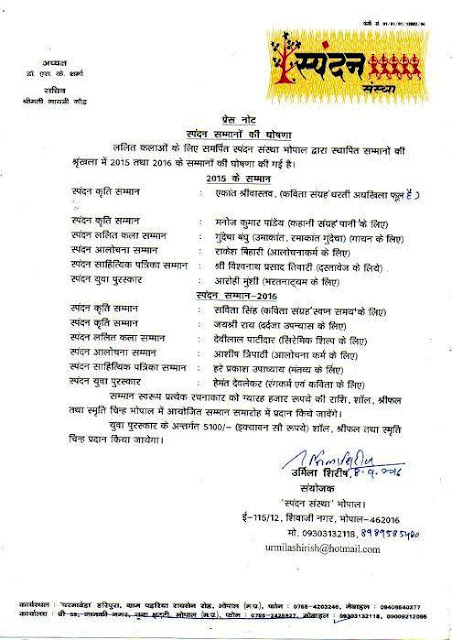 अध्यक्ष
डॉ. एस. के. शर्मा
सचिव
श्रीमती गायत्री गौड़
स्पंदन
संस्था
प्रेस नोट
स्पंदन सम्मानों की घोषणा
ललित कलाओं के लिए समर्पित स्पंदन संस्था भोपाल द्वारा स्थापित सम्मानों की
श्रृंखला में 2015 तथा 2016 के सम्मानों की घोषणा की गई है।
2015 के सम्मान
स्पंदन कृति सम्मान : एकांत श्रीवास्तव, (कविता संग्रह धरती अधखिला फूल है)
स्पंदन कृति सम्मान : मनोज कुमार पांडेय (कहानी संग्रह 'पानी' के लिए)
स्पंदन ललित कला सम्मान : गुंदेचा बंधु (उमाकांत, रमाकांत गुंदेचा) (गायन के लिए)
स्पंदन आलोचना सम्मान : राकेश बिहारी (आलोचनाकर्म के लिए)
स्पंदन साहित्यिक पत्रिका सम्मान : श्री विश्वनाथ प्रसाद तिवारी (दस्तावेज के लिये)
स्पंदन युवा पुरस्कार : आरोही मुंशी (भरतनाट्यम के लिए)
स्पंदन सम्मान-2016
स्पंदन कृति सम्मान : सविता सिंह (कविता संग्रह 'स्वप्न समय' के लिए)
स्पंदन कृति सम्मान : जयश्री राय (दर्दजा उपन्यास के लिए)
स्पंदन ललित कला सम्मान : देवीलाल पाटीदार (सिरेमिक शिल्प के लिए)
स्पंदन आलोचना सम्मान : आशीष त्रिपाठी (आलोचना कर्म के लिए)
स्पंदन साहित्यिक पत्रिका सम्मान : हरे प्रकाश उपाध्याय (मंतव्य के लिए)
स्पंदन युवा पुरस्कार : हेमंत देवलेकर (रंगकर्म एवं कविता के लिए)
सम्मान स्वरूप प्रत्येक रचनाकार को ग्यारह हजार रूपये की राशि, शॉल, श्रीफल
तथा स्मृति चिन्ह भोपाल में आयोजित सम्मान समारोह में प्रदान किये जावेंगे।
युवा पुरस्कार के अन्तर्गत 5100/- (इक्यावन सौ रूपये) शॉल, श्रीफल तथा स्मृति
चिन्ह प्रदान किया जायेगा।
उर्मिला शिरीष,
संयोजक
'स्पंदन संस्था' भोपाल।
ई-115/12, शिवाजी नगर, भोपाल-462016
मो. 09303132118, 8989585400
urmilashirish@hotmail.com